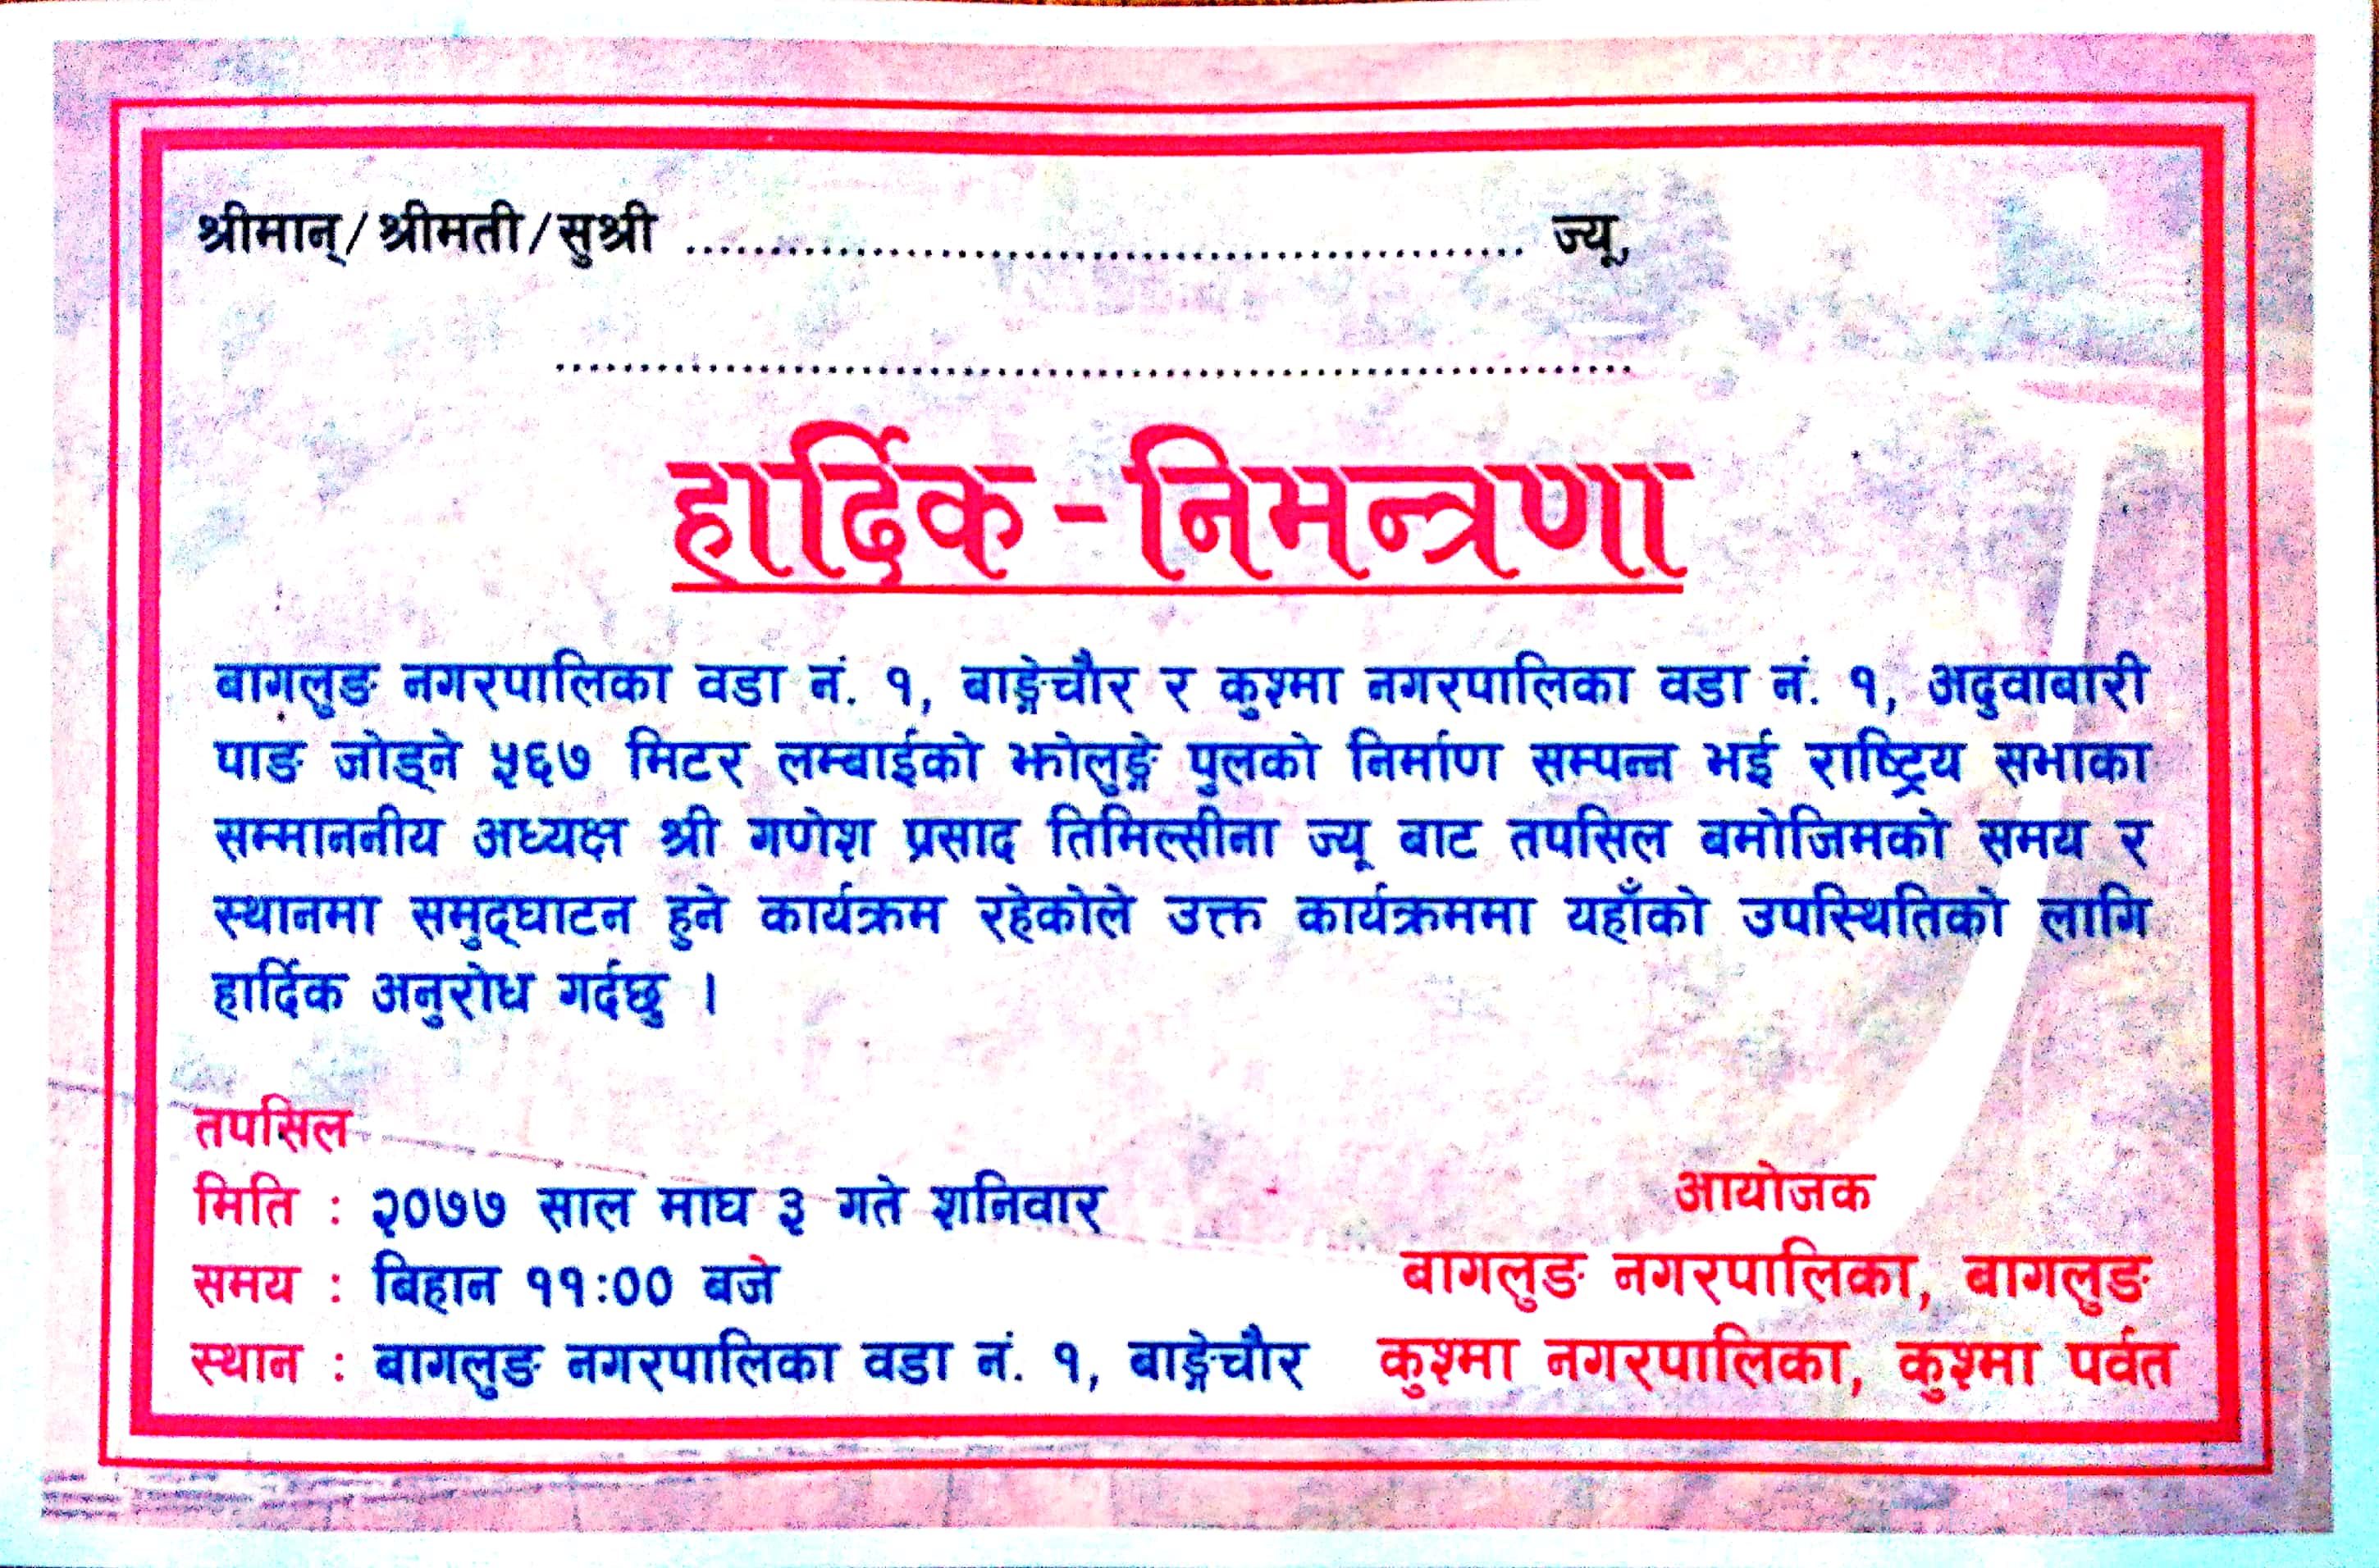 श्रीमान्/श्रीमती/सुश्री .................................................. ज्यू,
................................................................
हार्दिक - निमन्त्रणा
बागलुङ नगरपालिका वडा नं. १, बाङ्गेचौर र कुश्मा नगरपालिका वडा नं. १, अदुवाबारी
पाङ जोड्ने ५६७ मिटर लम्बाईको झोलुङ्गे पुलको निर्माण सम्पन्न भई राष्ट्रिय सभाका
सम्माननीय अध्यक्ष श्री गणेश प्रसाद तिमिल्सीना ज्यू बाट तपसिल बमोजिमको समय र
स्थानमा समुद्घाटन हुने कार्यक्रम रहेकोले उक्त कार्यक्रममा यहाँको उपस्थितिको लागि
हार्दिक अनुरोध गर्दछु ।
तपसिल
मिति : २०७७ साल माघ ३ गते शनिवार
समय : बिहान ११:०० बजे
स्थान : बागलुङ नगरपालिका वडा नं. १, बाङ्गेचौर
आयोजक
बागलुङ नगरपालिका, बागलुङ
कुश्मा नगरपालिका, कुश्मा पर्वत